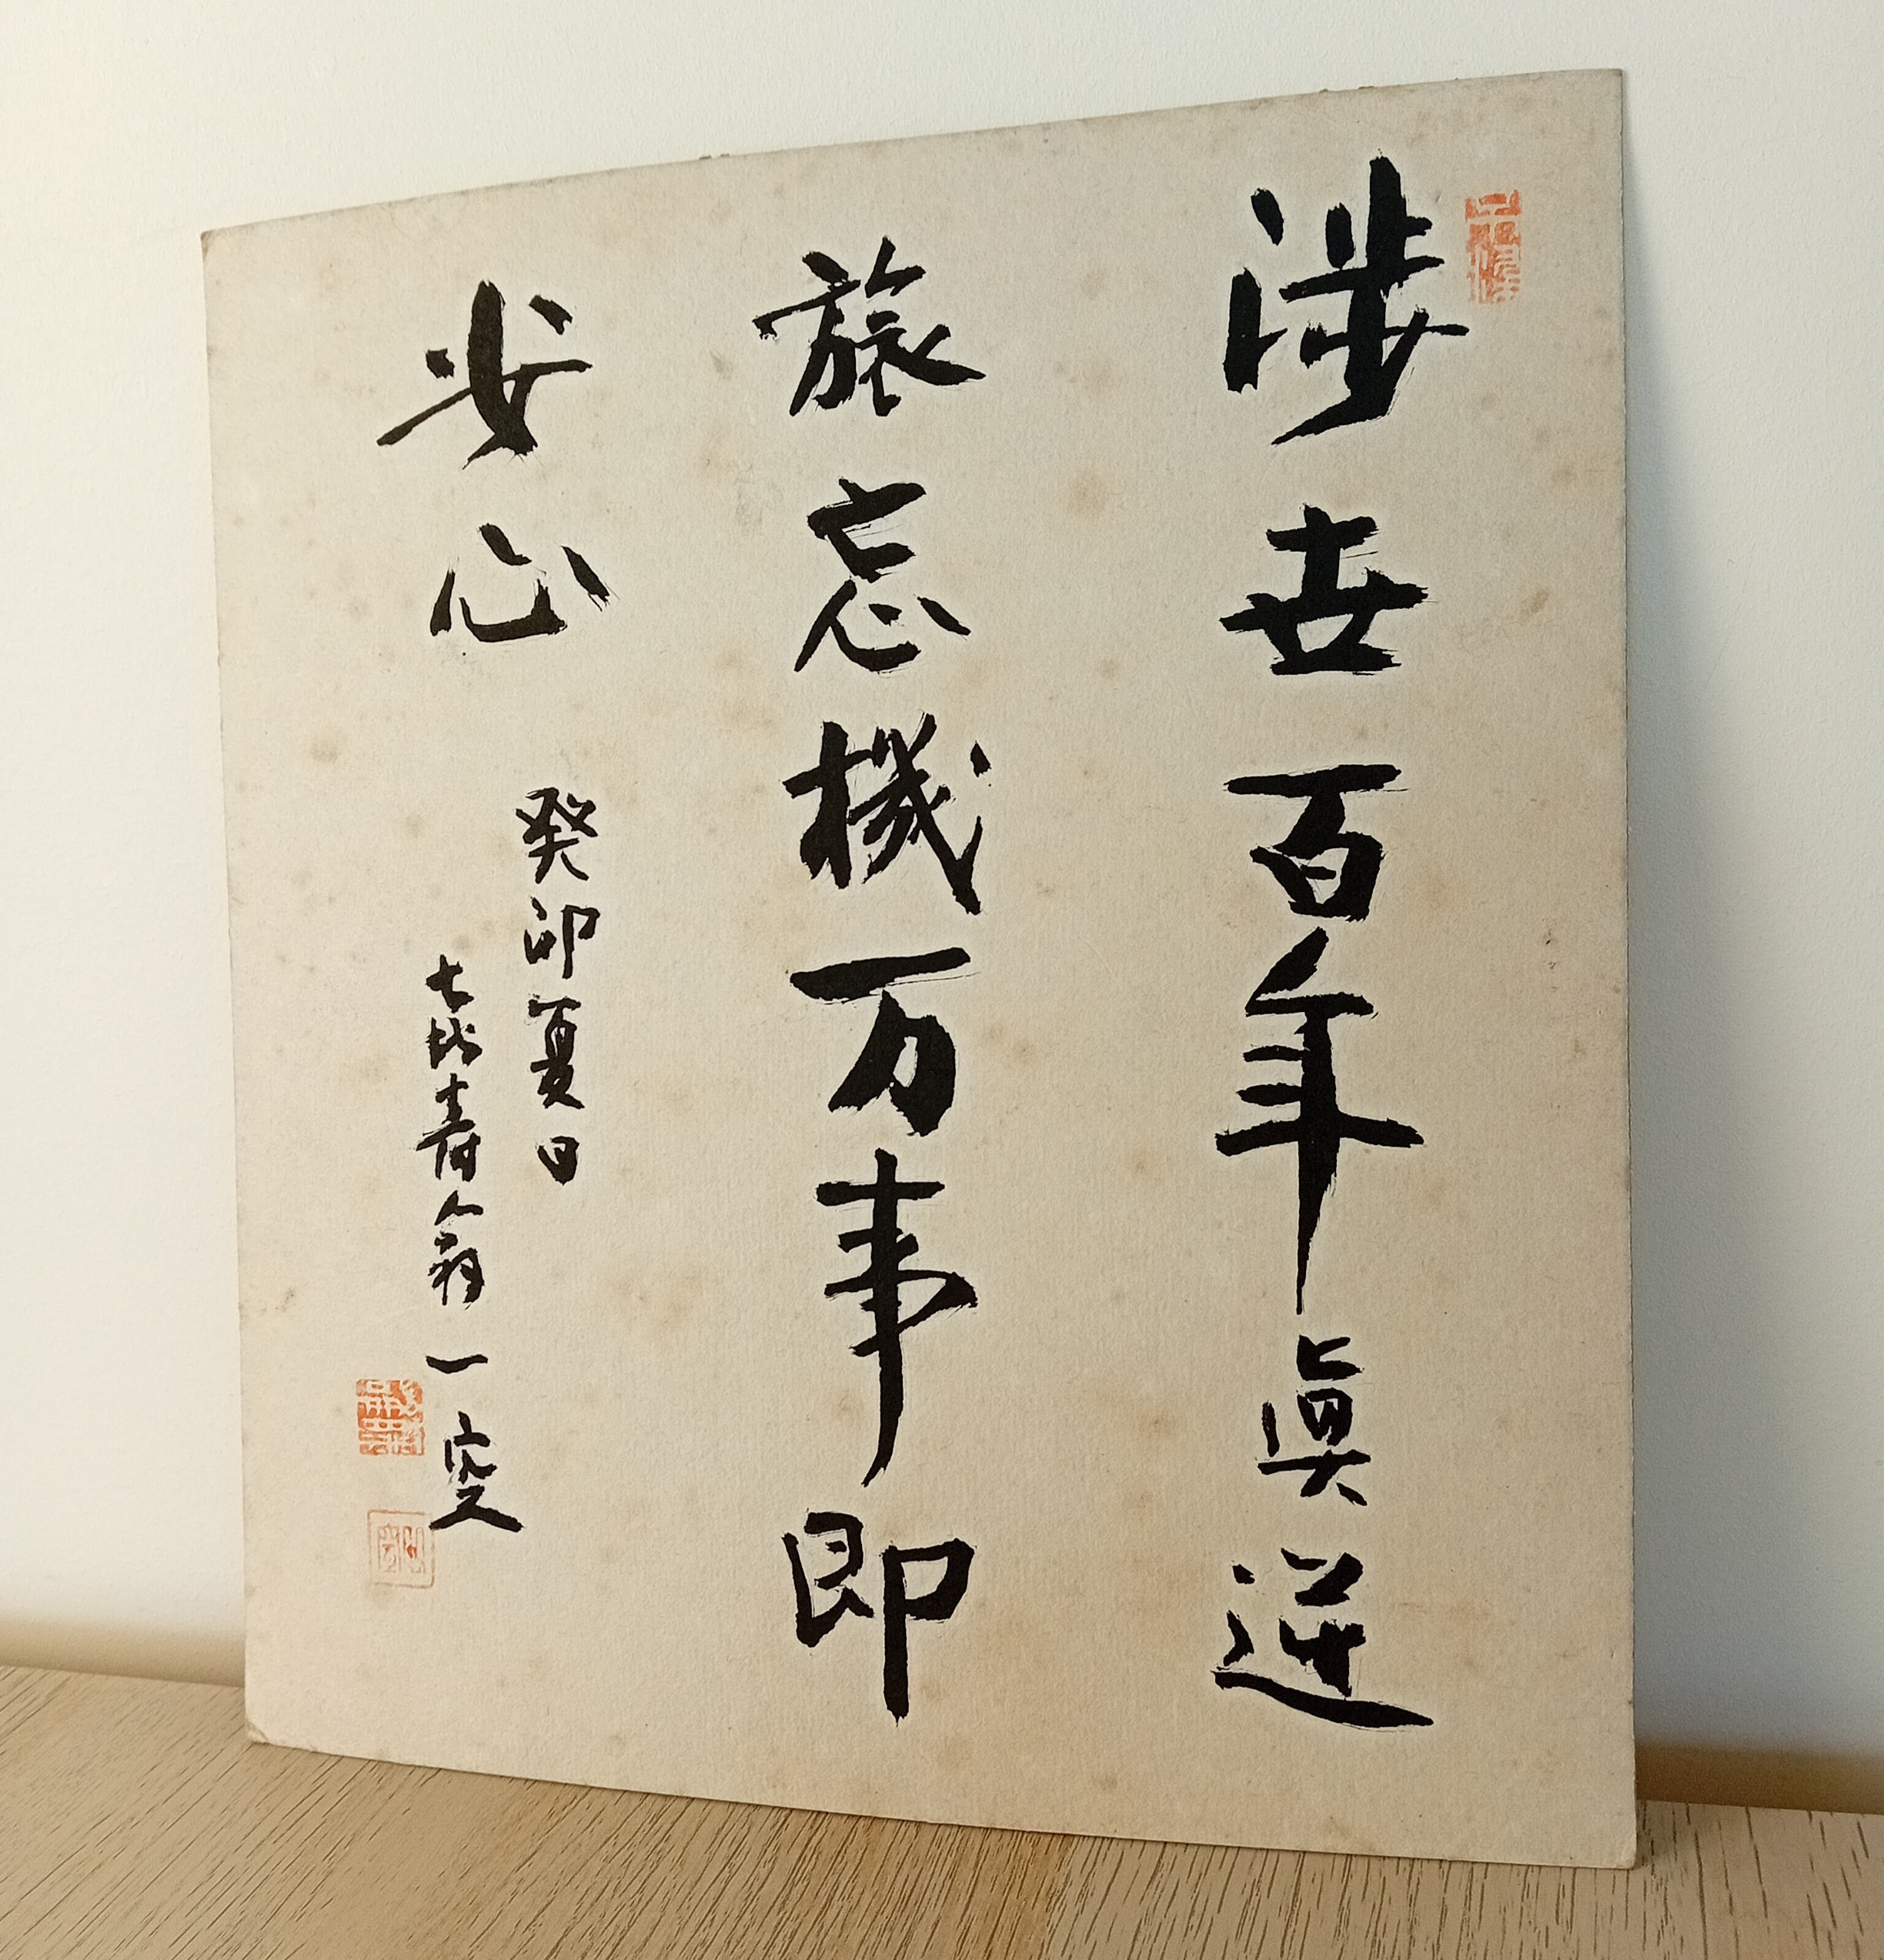 渉世百年真逆
旅忘機万事即
安心
癸卯夏日
七十七寿翁一空